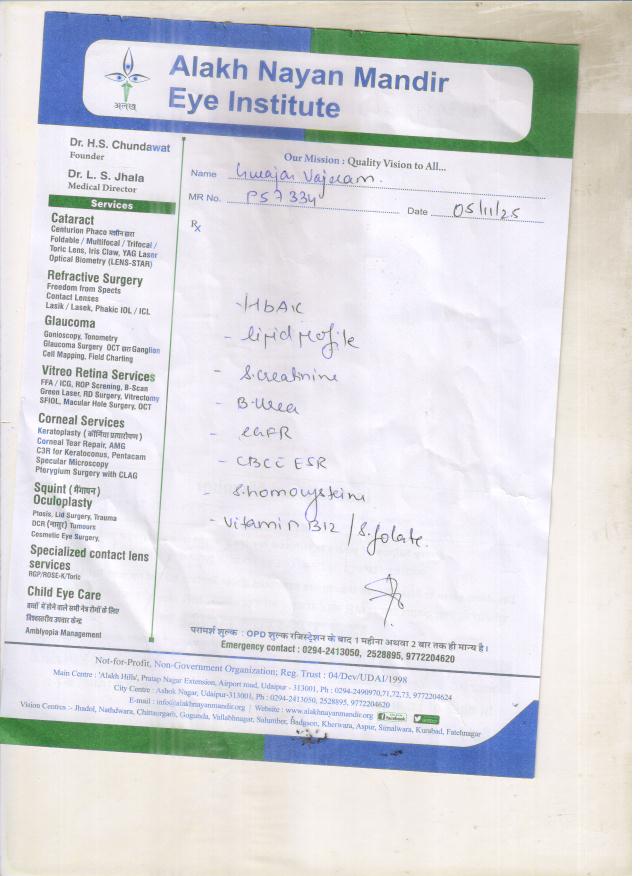 Alakh Nayan Mandir
Eye Institute
अलख
Dr. H.S. Chundawat
Founder
Dr. L. S. Jhala
Medical Director
Services
Cataract
Centurion Phaco मशीन द्वारा
Foldable / Multifocal / Trifocal /
Toric Lens, Iris Claw, YAG Laser
Optical Biometry (LENS-STAR)
Refractive Surgery
Freedom from Spects
Contact Lenses
Lasik / Lasek, Phakic IOL / ICL
Glaucoma
Gonioscopy, Tonometry
Glaucoma Surgery OCT द्वारा Ganglion
Cell Mapping, Field Charting
Vitreo Retina Services
FFA / ICG, ROP Screning, B-Scan
Green Laser, RD Surgery, Vitrectomy
SFIOL, Macular Hole Surgery, OCT
Corneal Services
Keratoplasty (कॉर्निया प्रत्यारोपण)
Corneal Tear Repair, AMG
C3R for Keratoconus, Pentacam
Specular Microscopy
Pterygium Surgery with CLAG
Squint (भैंगापन)
Oculoplasty
Ptosis, Lid Surgery, Trauma
DCR (नासूर) Tumours
Cosmetic Eye Surgery,
Specialized contact lens
services
RGP/ROSE-K/Toric
Child Eye Care
बच्चों में होने वाले सभी नेत्र रोगों के लिए
विश्वस्तरीय उपचार केन्द्र
Amblyopia Management
Our Mission : Quality Vision to All...
Name
MR No. P57334
Date 05/11/25
Rx
- HbA1c
- lipid profile
- S.creatinine
- B.Urea
- eGFR
- CBC ESR
- S.homocysteine
- Vitamin B12 / S.folate.
परामर्श शुल्क : OPD शुल्क रजिस्ट्रेशन के बाद 1 महीना अथवा 2 बार तक ही मान्य है।
Emergency contact : 0294-2413050, 2528895, 9772204620
Not-for-Profit, Non-Government Organization; Reg. Trust : 04/Dev/UDAI/1998
Main Centre : 'Alakh Hills', Pratap Nagar Extension, Airport road, Udaipur - 313001, Ph : 0294-2490970,71,72,73, 9772204624
City Centre : Ashok Nagar, Udaipur-313001, Ph : 0294-2413050, 2528895, 9772204620
E-mail : info@alakhnayanmandir.org | Website : www.alakhnayanmandir.org facebook
Vision Centres :- Jhadol, Nathdwara, Chittaurgarh, Gogunda, Vallabhnagar, Salumber, Badgaon, Kherwara, Aspur, Simalwara, Kurabad, Fatehnagar